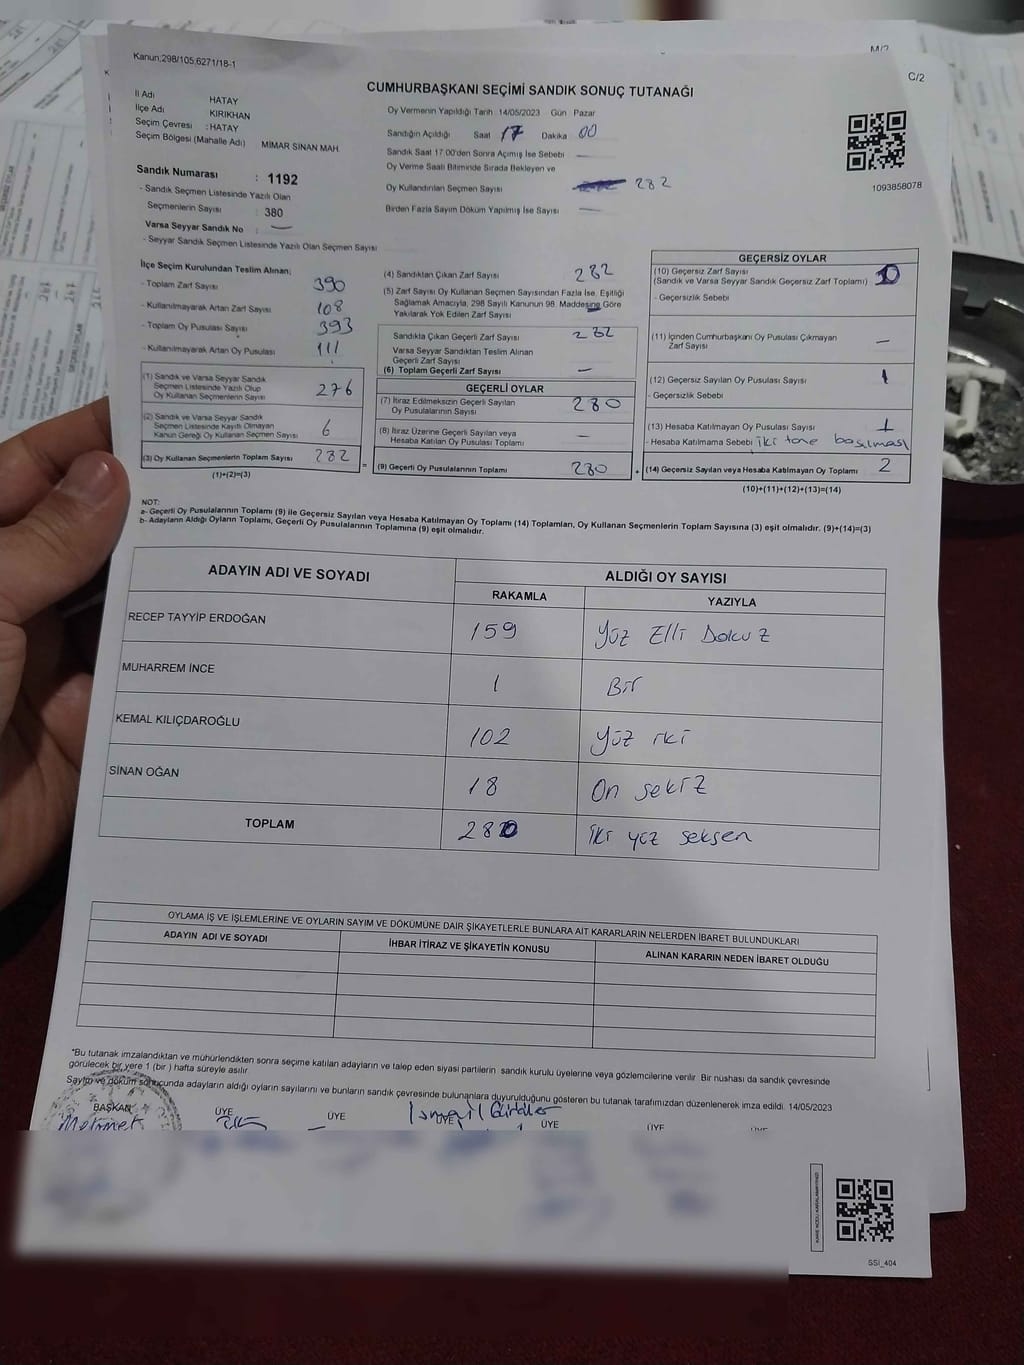 Kanun;298/105;6271/18-1
C/2
CUMHURBAŞKANI SEÇİMİ SANDIK SONUÇ TUTANAĞI
İl Adı HATAY
İlçe Adı KIRIKHAN
Seçim Çevresi : HATAY
Seçim Bölgesi (Mahalle Adı) MİMAR SİNAN MAH.
Oy Vermenin Yapıldığı Tarih 14/05/2023 Gün Pazar
Sandığın Açıldığı Saat 17 Dakika 00
Sandık Saat 17:00'den Sonra Açılmış İse Sebebi
Oy Verme Saati Bitiminde Sırada Bekleyen ve
Oy Kullandırılan Seçmen Sayısı 282
Birden Fazla Sayım Döküm Yapılmış İse Sayısı —
1093858078
Sandık Numarası : 1192
- Sandık Seçmen Listesinde Yazılı Olan
Seçmenlerin Sayısı : 380
Varsa Seyyar Sandık No : —
- Seyyar Sandık Seçmen Listesinde Yazılı Olan Seçmen Sayısı
İlçe Seçim Kurulundan Teslim Alınan;
- Toplam Zarf Sayısı 390
- Kullanılmayarak Artan Zarf Sayısı 108
- Toplam Oy Pusulası Sayısı 393
- Kullanılmayarak Artan Oy Pusulası 111
(1) Sandık ve Varsa Seyyar Sandık
Seçmen Listesinde Yazılı Olup
Oy Kullanan Seçmenlerin Sayısı 276
(2) Sandık ve Varsa Seyyar Sandık
Seçmen Listesinde Kayıtlı Olmayan
Kanun Gereği Oy Kullanan Seçmen Sayısı 6
(3) Oy Kullanan Seçmenlerin Toplam Sayısı 282
(1)+(2)=(3)
(4) Sandıktan Çıkan Zarf Sayısı 282
(5) Zarf Sayısı Oy Kullanan Seçmen Sayısından Fazla İse, Eşitliği
Sağlamak Amacıyla, 298 Sayılı Kanunun 98. Maddesine Göre
Yakılarak Yok Edilen Zarf Sayısı
Sandıkta Çıkan Geçerli Zarf Sayısı 282
Varsa Seyyar Sandıktan Teslim Alınan
Geçerli Zarf Sayısı
(6) Toplam Geçerli Zarf Sayısı —
GEÇERLİ OYLAR
(7) İtiraz Edilmeksizin Geçerli Sayılan
Oy Pusulalarının Sayısı 280
(8) İtiraz Üzerine Geçerli Sayılan veya
Hesaba Katılan Oy Pusulası Toplamı —
= (9) Geçerli Oy Pusulalarının Toplamı 280
GEÇERSİZ OYLAR
(10) Geçersiz Zarf Sayısı 0
(Sandık ve Varsa Seyyar Sandık Geçersiz Zarf Toplamı)
- Geçersizlik Sebebi
(11) İçinden Cumhurbaşkanı Oy Pusulası Çıkmayan
Zarf Sayısı —
(12) Geçersiz Sayılan Oy Pusulası Sayısı 1
- Geçersizlik Sebebi
(13) Hesaba Katılmayan Oy Pusulası Sayısı 1
- Hesaba Katılmama Sebebi iki tane basılması
+ (14) Geçersiz Sayılan veya Hesaba Katılmayan Oy Toplamı 2
(10)+(11)+(12)+(13)=(14)
NOT:
a- Geçerli Oy Pusulalarının Toplamı (9) ile Geçersiz Sayılan veya Hesaba Katılmayan Oy Toplamı (14) Toplamları, Oy Kullanan Seçmenlerin Toplam Sayısına (3) eşit olmalıdır. (9)+(14)=(3)
b- Adayların Aldığı Oyların Toplamı, Geçerli Oy Pusulalarının Toplamına (9) eşit olmalıdır.
ADAYIN ADI VE SOYADI ALDIĞI OY SAYISI
RAKAMLA YAZIYLA
RECEP TAYYİP ERDOĞAN 159 Yüz Elli Dokuz
MUHARREM İNCE 1 Bir
KEMAL KILIÇDAROĞLU 102 Yüz iki
SİNAN OĞAN 18 On sekiz
TOPLAM 280 iki yüz seksen
OYLAMA İŞ VE İŞLEMLERİNE VE OYLARIN SAYIM VE DÖKÜMÜNE DAİR ŞİKAYETLERLE BUNLARA AİT KARARLARIN NELERDEN İBARET BULUNDUKLARI
ADAYIN ADI VE SOYADI İHBAR İTİRAZ VE ŞİKAYETİN KONUSU ALINAN KARARIN NEDEN İBARET OLDUĞU
*Bu tutanak imzalandıktan ve mühürlendikten sonra seçime katılan adayların ve talep eden siyasi partilerin sandık kurulu üyelerine veya gözlemcilerine verilir. Bir nüshası da sandık çevresinde
görülecek bir yere 1 (bir) hafta süreyle asılır.
Sayım ve döküm sonucunda adayların aldığı oyların sayılarını ve bunların sandık çevresinde bulunanlara duyurulduğunu gösteren bu tutanak tarafımızdan düzenlenerek imza edildi. 14/05/2023
BAŞKAN ÜYE ÜYE ÜYE ÜYE ÜYE ÜYE
Mehmet İsmail
SSİ_404